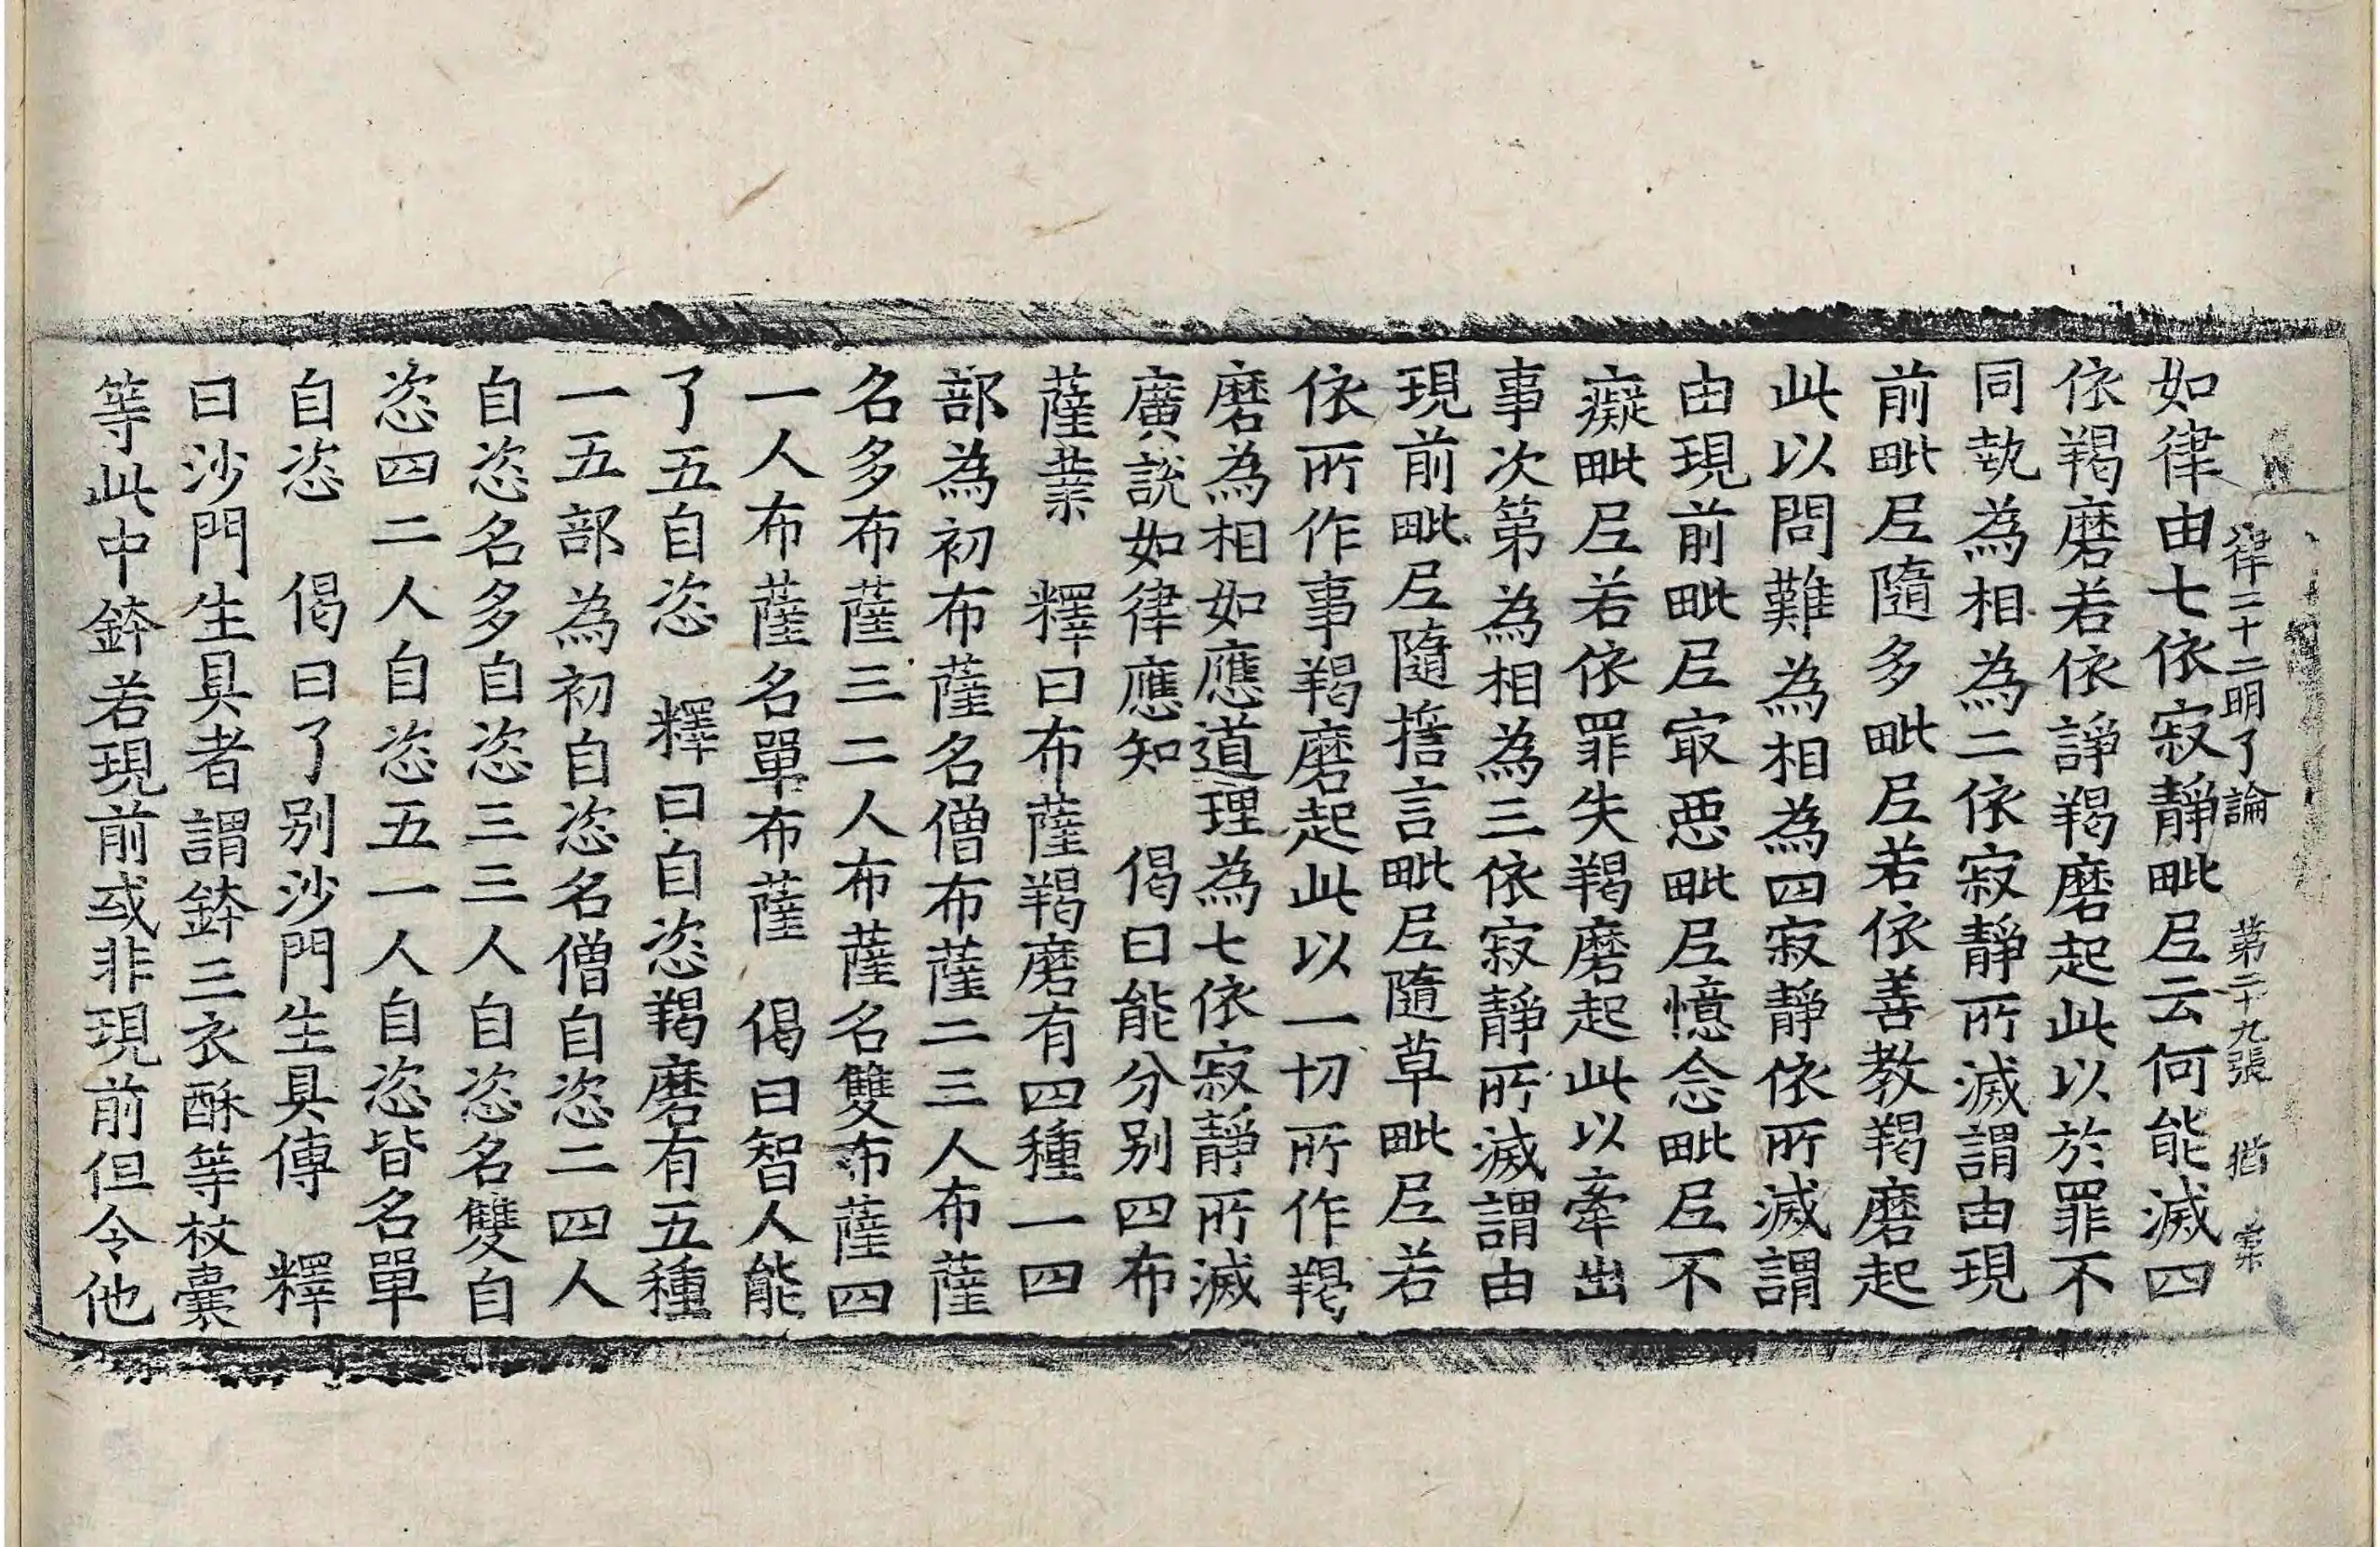 律二十二明了論 第二十九張 猶
如律由七依寂靜毗尼云何能滅四
依羯磨若依諍羯磨起此以於罪不
同執為相為二依寂靜所滅謂由現
前毗尼隨多毗尼若依善教羯磨起
此以問難為相為四寂靜依所滅謂
由現前毗尼㝡惡毗尼憶念毗尼不
癡毗尼若依罪失羯磨起此以牽出
事次第為相為三依寂靜所滅謂由
現前毗尼隨擔言毗尼隨草毗尼若
依所作事羯磨起此以一切所作羯
磨為相如應道理為七依寂靜所滅
廣說如律應知 偈曰能分別四布
薩業 釋曰布薩羯磨有四種一四
部為初布薩名僧布薩二三人布薩
名多布薩三二人布薩名雙布薩四
一人布薩名單布薩 偈曰智人能
了五自恣 釋曰自恣羯磨有五種
一五部為初自恣名僧自恣二四人
自恣名多自恣三三人自恣名雙自
恣四二人自恣五一人自恣皆名單
自恣 偈曰了別沙門生具傳 釋
曰沙門生具者謂鉢三衣酥等杖囊
等此中鉢若現前或非現前但令他